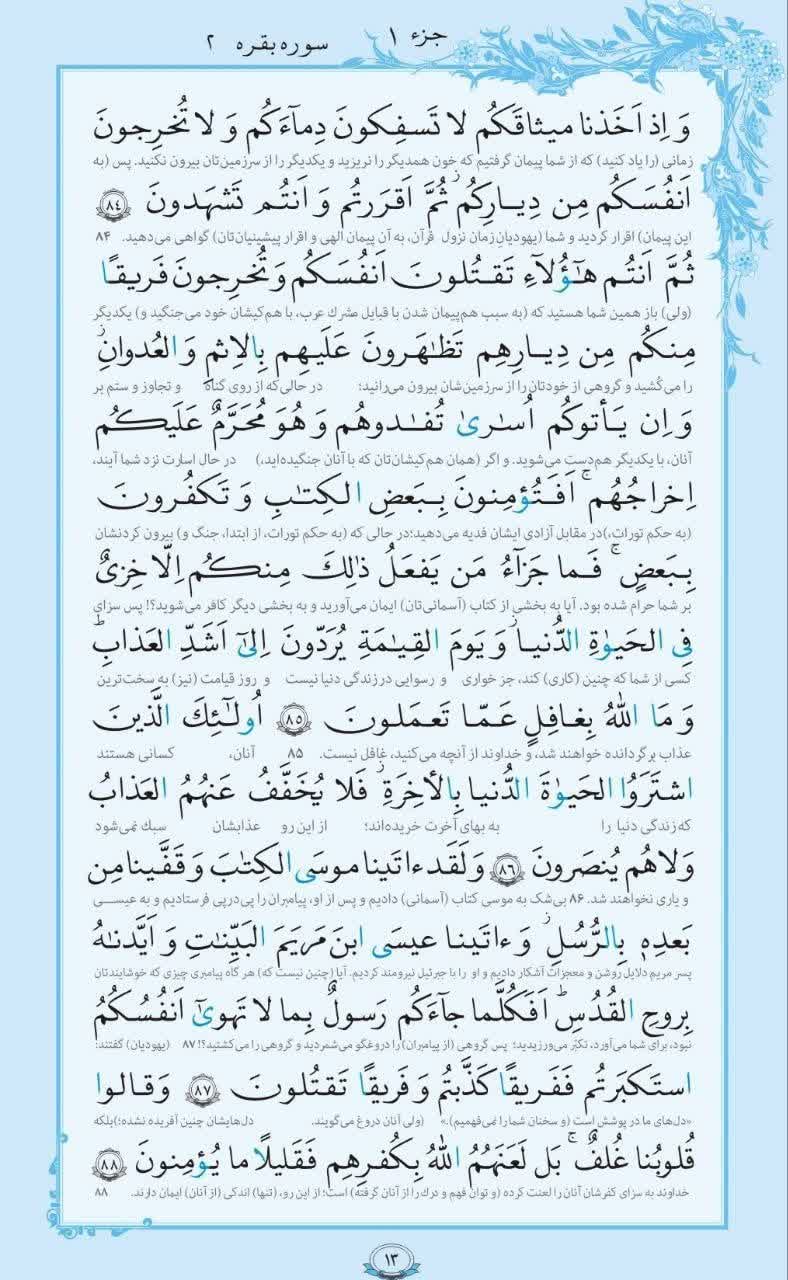 جزء ۱
سوره بقره ۲
وَ اِذ اَخَذنا ميثاقَكُم لا تَسفِكونَ دِمآءَكُم وَ لا تُخرِجونَ
زمانی (را یاد کنید) که از شما پیمان گرفتیم که خون همدیگر را نریزید و یکدیگر را از سرزمین‌تان بیرون نکنید. پس (به
اَنفُسَكُم مِن دِيـارِكُم ثُمَّ اَقرَرتُم وَ اَنتُم تَشهَدونَ ۸۴
این پیمان) اقرار کردید و شما (یهودیانِ زمان نزول قرآن، به آن پیمان الهی و اقرار پیشینیان‌تان) گواهی می‌دهید. ۸۴
ثُمَّ اَنتُم هٰٓؤُلآءِ تَقتُلونَ اَنفُسَكُم وَ تُخرِجونَ فَريقًا
(ولی) باز همین شما هستید که (به سبب هم‌پیمان شدن با قبایل مشرك عرب، با هم‌کیشان خود می‌جنگید و) یکدیگر
مِنكُم مِن دِيـارِهِم تَظٰهَرونَ عَلَيهِم بِالاِثمِ وَ العُدوانِ
را می‌کُشید و گروهی از خودتان را از سرزمین‌شان بیرون می‌رانید؛ در حالی‌که از روی گناه و تجاوز و ستم بر
وَ اِن يَأتوكُم اُسٰرىٰ تُفـٰدوهُم وَ هُوَ مُحَرَّمٌ عَلَيكُم
آنان، با یکدیگر هم‌دست می‌شوید. و اگر (همان هم‌کیشان‌تان که با آنان جنگیده‌اید،) در حال اسارت نزد شما آیند،
اِخراجُهُم ۚ اَفَتُؤمِنونَ بِبَعضِ الكِتٰبِ وَ تَكفُرونَ
(به حکم تورات،) در مقابل آزادی ایشان فدیه می‌دهید؛ در حالی که (به حکم تورات، از ابتدا، جنگ و) بیرون کردنشان
بِبَعضٍ ۚ فَما جَزآءُ مَن يَفعَلُ ذٰلِكَ مِنكُم اِلّا خِزىٌ
بر شما حرام شده بود. آیا به بخشی از کتاب (آسمانی‌تان) ایمان می‌آورید و به بخشی دیگر کافر می‌شوید؟! پس سزای
فِى الحَيوٰةِ الدُّنيا وَ يَومَ القِيٰمَةِ يُرَدّونَ اِلىٰٓ اَشَدِّ العَذابِ
کسی از شما که چنین (کاری) کند، جز خواری و رسوایی در زندگی دنیا نیست و روز قیامت (نیز) به سخت‌ترین
وَ مَا اللهُ بِغافِلٍ عَمّا تَعمَلونَ ۸۵ اُولٰٓئِكَ الَّذينَ
عذاب برگردانده خواهند شد، و خداوند از آنچه می‌کنید، غافل نیست. ۸۵ آنان، کسانی هستند
اشتَرَوُا الحَيوٰةَ الدُّنيا بِالأخِرَةِ فَلا يُخَفَّفُ عَنهُمُ العَذابُ
که زندگی دنیا را به بهای آخرت خریده‌اند؛ از این رو عذابشان سبك نمی‌شود
وَلاهُم يُنصَرونَ ۸۶ وَ لَقَد ءاتَينا موسَى الكِتٰبَ وَ قَفَّينا مِن
و یاری نخواهند شد. ۸۶ بی‌شک به موسی کتاب (آسمانی) دادیم و پس از او، پیامبران را پی‌درپی فرستادیم و به عیسـی
بَعدِهٖ بِالرُّسُلِ وَ ءاتَينا عيسَى ابنَ مَريَمَ البَيِّنٰتِ وَ اَيَّدنٰهُ
پسر مریم دلایل روشن و معجزات آشکار دادیم و او را با جبرئیل نیرومند کردیم. آیا (چنین نیست که) هر گاه پیامبری چیزی که خوشایندتان
بِروحِ القُدُسِ اَفَكُلَّما جآءَكُم رَسولٌ بِما لا تَهوىٰٓ اَنفُسُكُمُ
نبود، برای شما می‌آورد، تکبّر می‌ورزیدید؛ پس گروهی (از پیامبران) را دروغگو می‌شمردید و گروهی را می‌کشتید؟! ۸۷ (یهودیان) گفتند:
استَكبَرتُم فَفَريقًا كَذَّبتُم وَ فَريقًا تَقتُلونَ ۸۷ وَ قالوا
«دل‌های ما در پوشش است (و سخنان شما را نمی‌فهمیم).» (ولی آنان دروغ می‌گویند. دل‌هایشان چنین آفریده نشده؛) بلکه
قُلوبُنا غُلفٌ ۚ بَل لَعَنَهُمُ اللهُ بِكُفرِهِم فَقَليلًا ما يُؤمِنونَ ۸۸
خداوند به سزای کفرشان آنان را لعنت کرده (و توان فهم و درك را از آنان گرفته) است؛ از این رو، (تنها) اندکی (از آنان) ایمان دارند. ۸۸
۱۳